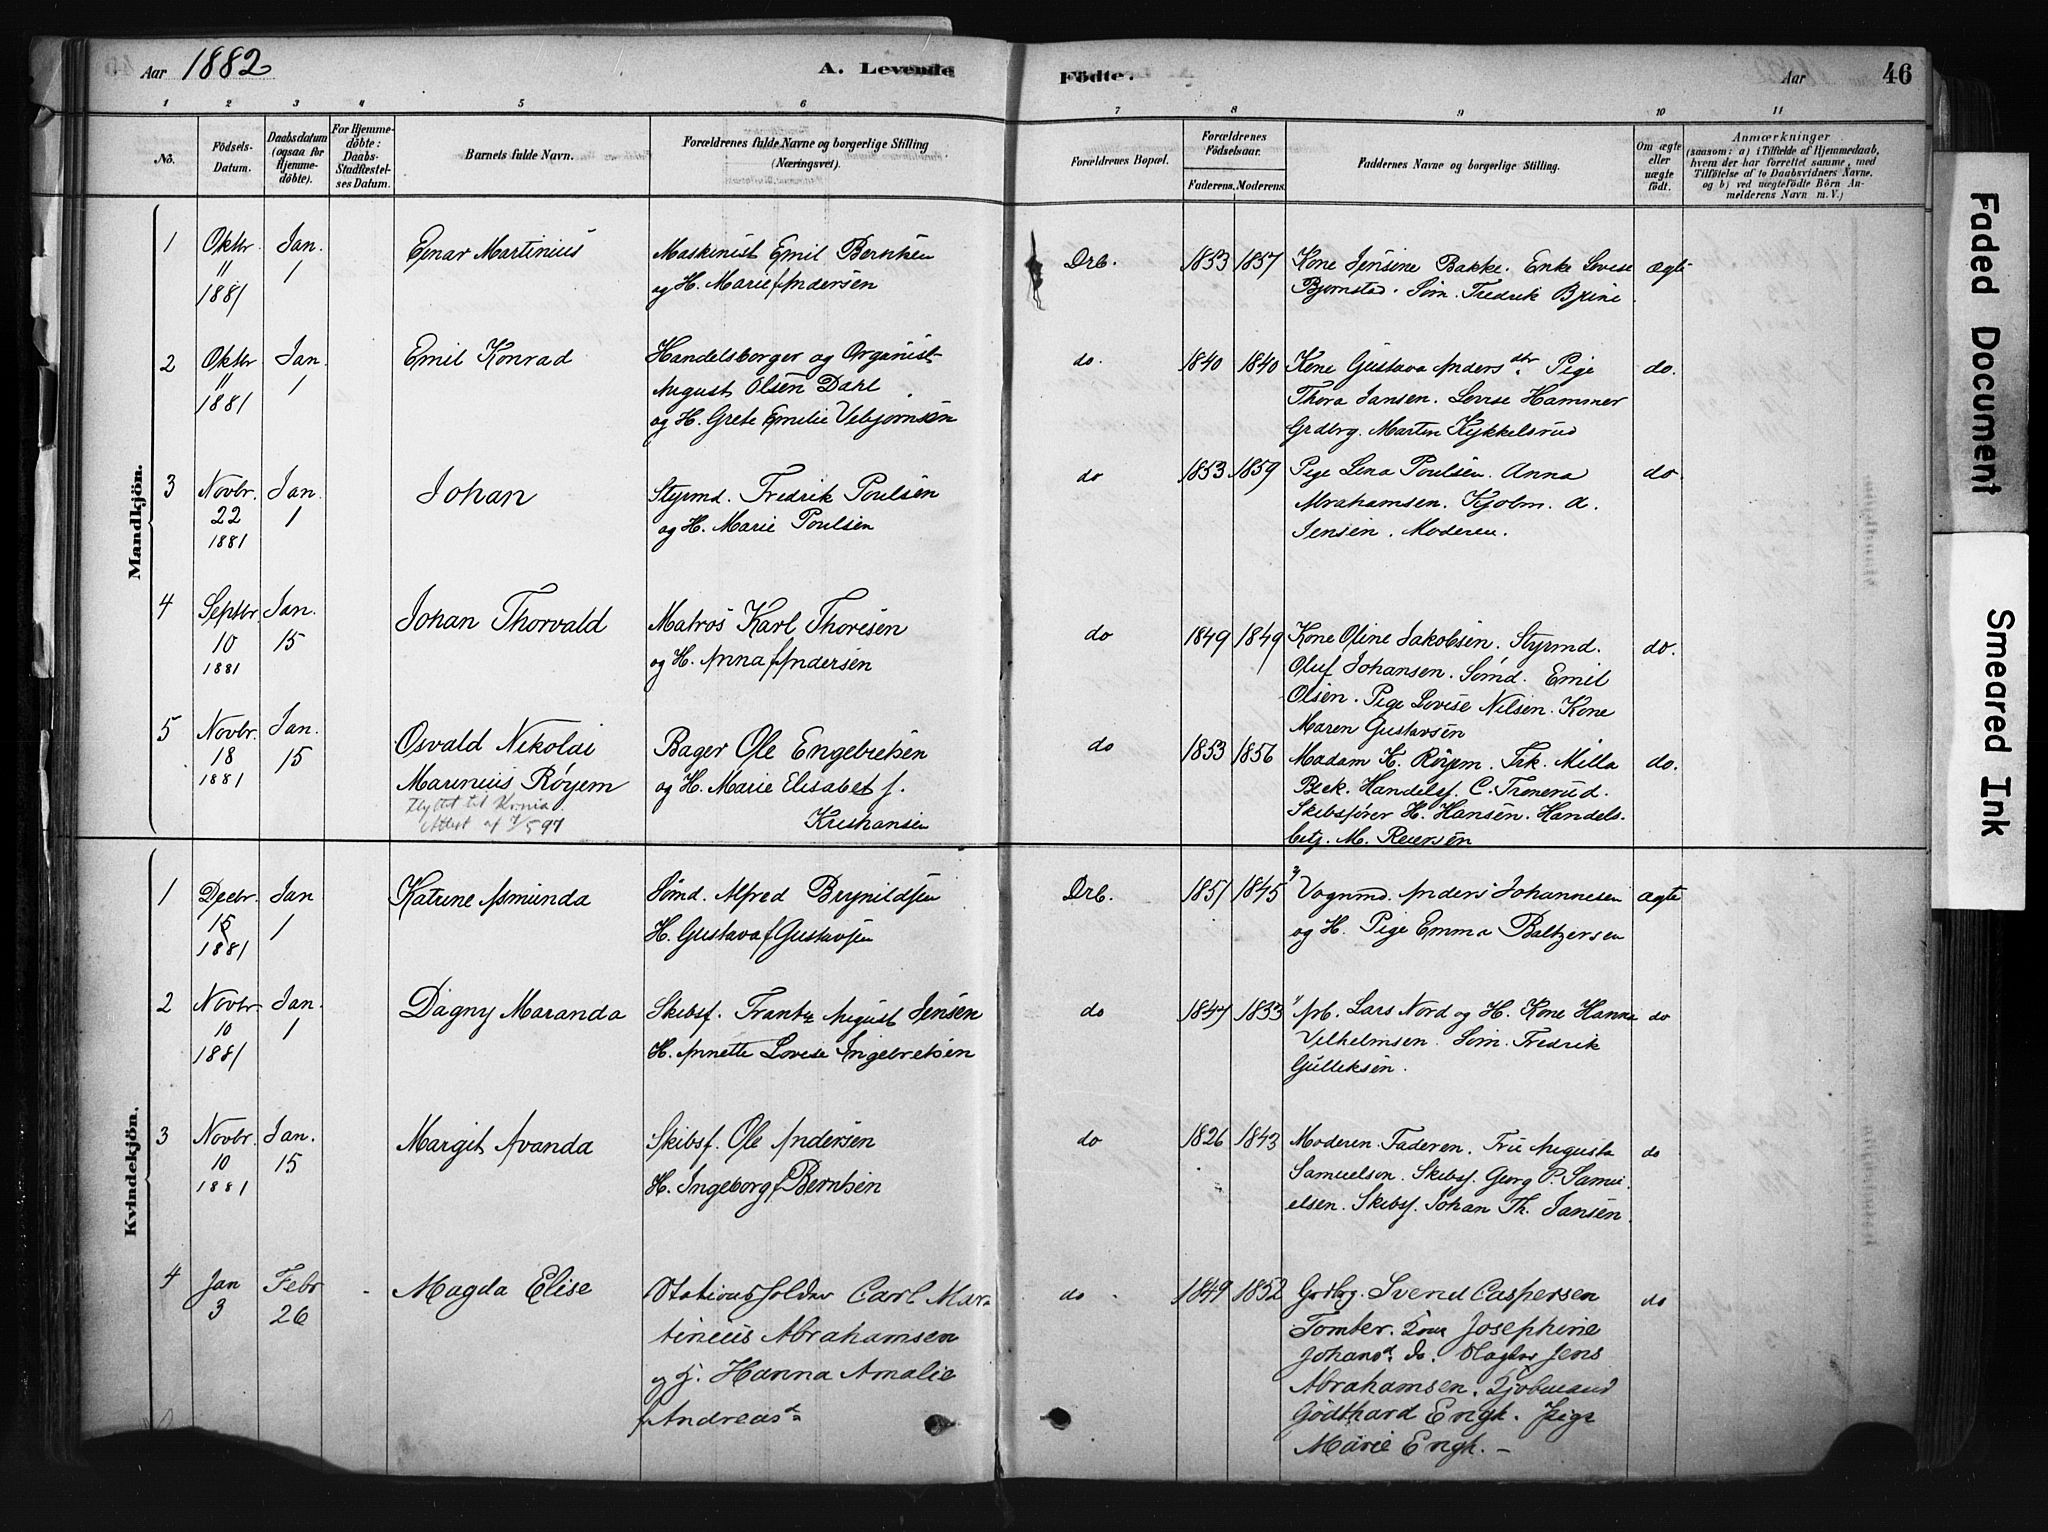 Aar 1882
A. Levende Födte.
Aar 46
1 2 3 4 5 6 7 8 9 10 11
No.
Födsels-Datum.
Daabsdatum (ogsaa for Hjemme-döbte).
For Hjemme-döbte: Daabs-Stadfæstel-ses Datum.
Barnets fulde Navn.
Forældrenes fulde Navne og borgerlige Stilling (Næringsvei).
Forældrenes Bopæl.
Forældrenes Födselsaar.
Faderens. Moderens.
Faddernes Navne og borgerlige Stilling.
Om ægte eller uægte födt.
Anmærkninger
(saasom: a) i Tilfælde af Hjemmedaab,
hvem der har forrettet samme, med
Tilföielse af to Daabsvidners Navne.
og b) ved uægtefödte Börn An-
melderens Navn m.V.)
Mandkjön.
1 Oktbr. 11 1881 Jan. 1 Ejnar Martinius
Maskinist Emil Berntsen
og H. Marie f Andersen
Drb. 1853 1857
Kone Jensine Bakke. Enke Lovise
Bjørnstad. Søm. Fredrik
ægte
2 Oktbr 11 1881 Jan. 1 Emil Konrad
Handelsborger og Organist
August Olsen Dahl
og H. Grete Emilie Vebjørnsen
do. 1840 1840
Kone Gustava Andersdtr. Pige
Thora Jansen. Lovise Hammer
Grdbrg. Marten Kykkelsrud
do.
3 Novbr. 22 1881 Jan. 1 Johan
Styrmd. Fredrik Poulsen
og H. Marie Poulsen
do 1853 1859
Pige Lena Poulsen. Anna
Abrahamsen. Kjøbm. A.
Jensen. Moderen.
do.
4 Septbr 10 1881 Jan. 15 Johan Thorvald
Matros Karl Thoresen
og H. Anna f Andersen
do 1849 1849
Kone Oline Jakobsen. Styrmd.
Oluf Johansen. Sømd. Emil
Olsen. Pige Lovise Nilsen. Kone
Maren Gustavsen
do.
5 Novbr. 18 1881 Jan. 15 Osvald Nikolai
Marinius Røyem
flyttet til Krnia.
Attest af 7/5 97
Bager Ole Engebretsen
og H. Marie Elisabet f.
Kristiansen
do 1853 1856
Madam K. Røyem. Frk. Milla
Beck. Handelsf. C. Trenerud.
Skibsfører H. Hansen. Handels-
betj. M. Reiersen
do.
Kvindekjön.
1 Decbr. 15 1881 Jan 1 Katrine Asmunda
Sømd. Alfred Brynildsen
H. Gustava f Gustavsen
Drb. 1851 1845
Vognmd. Anders Johannesen
og H. Pige Emma Baltzersen
ægte
2 Novbr. 10 1881 Jan. 1 Dagny Maranda
Skibsf. Frantz August Jensen
H. Annette Lovise Ingebretsen
do 1847 1853
Arb. Lars Nord og H. Kone Hanna
Vilhelmsen. Søm. Fredrik
Gulliksen.
do
3 Novbr. 10 1881 Jan. 15 Margit Avanda
Skibsf. Ole Andersen
H. Ingeborg f Berntsen
do 1826 1843
Moderen. Faderen. Fru Augusta
Samuelson. Skibsf. Georg P. Samu-
elsen. Skibsf. Johan Th. Jansen.
do
4 Jan 3 Febr 26 Magda Elise
Stationsholder Carl Mar-
tinius Abrahamsen
og H. Hanna Amalie
f Andreasd.
do 1849 1852
Grdbrg. Svend Caspersen
Tomter. Kone Josephine
Johansd. do. Slagter Jens
Abrahamsen. Kjøbmand
Godthard Engh. Pige
Marie Engh.
do
Faded Document
Smeared Ink